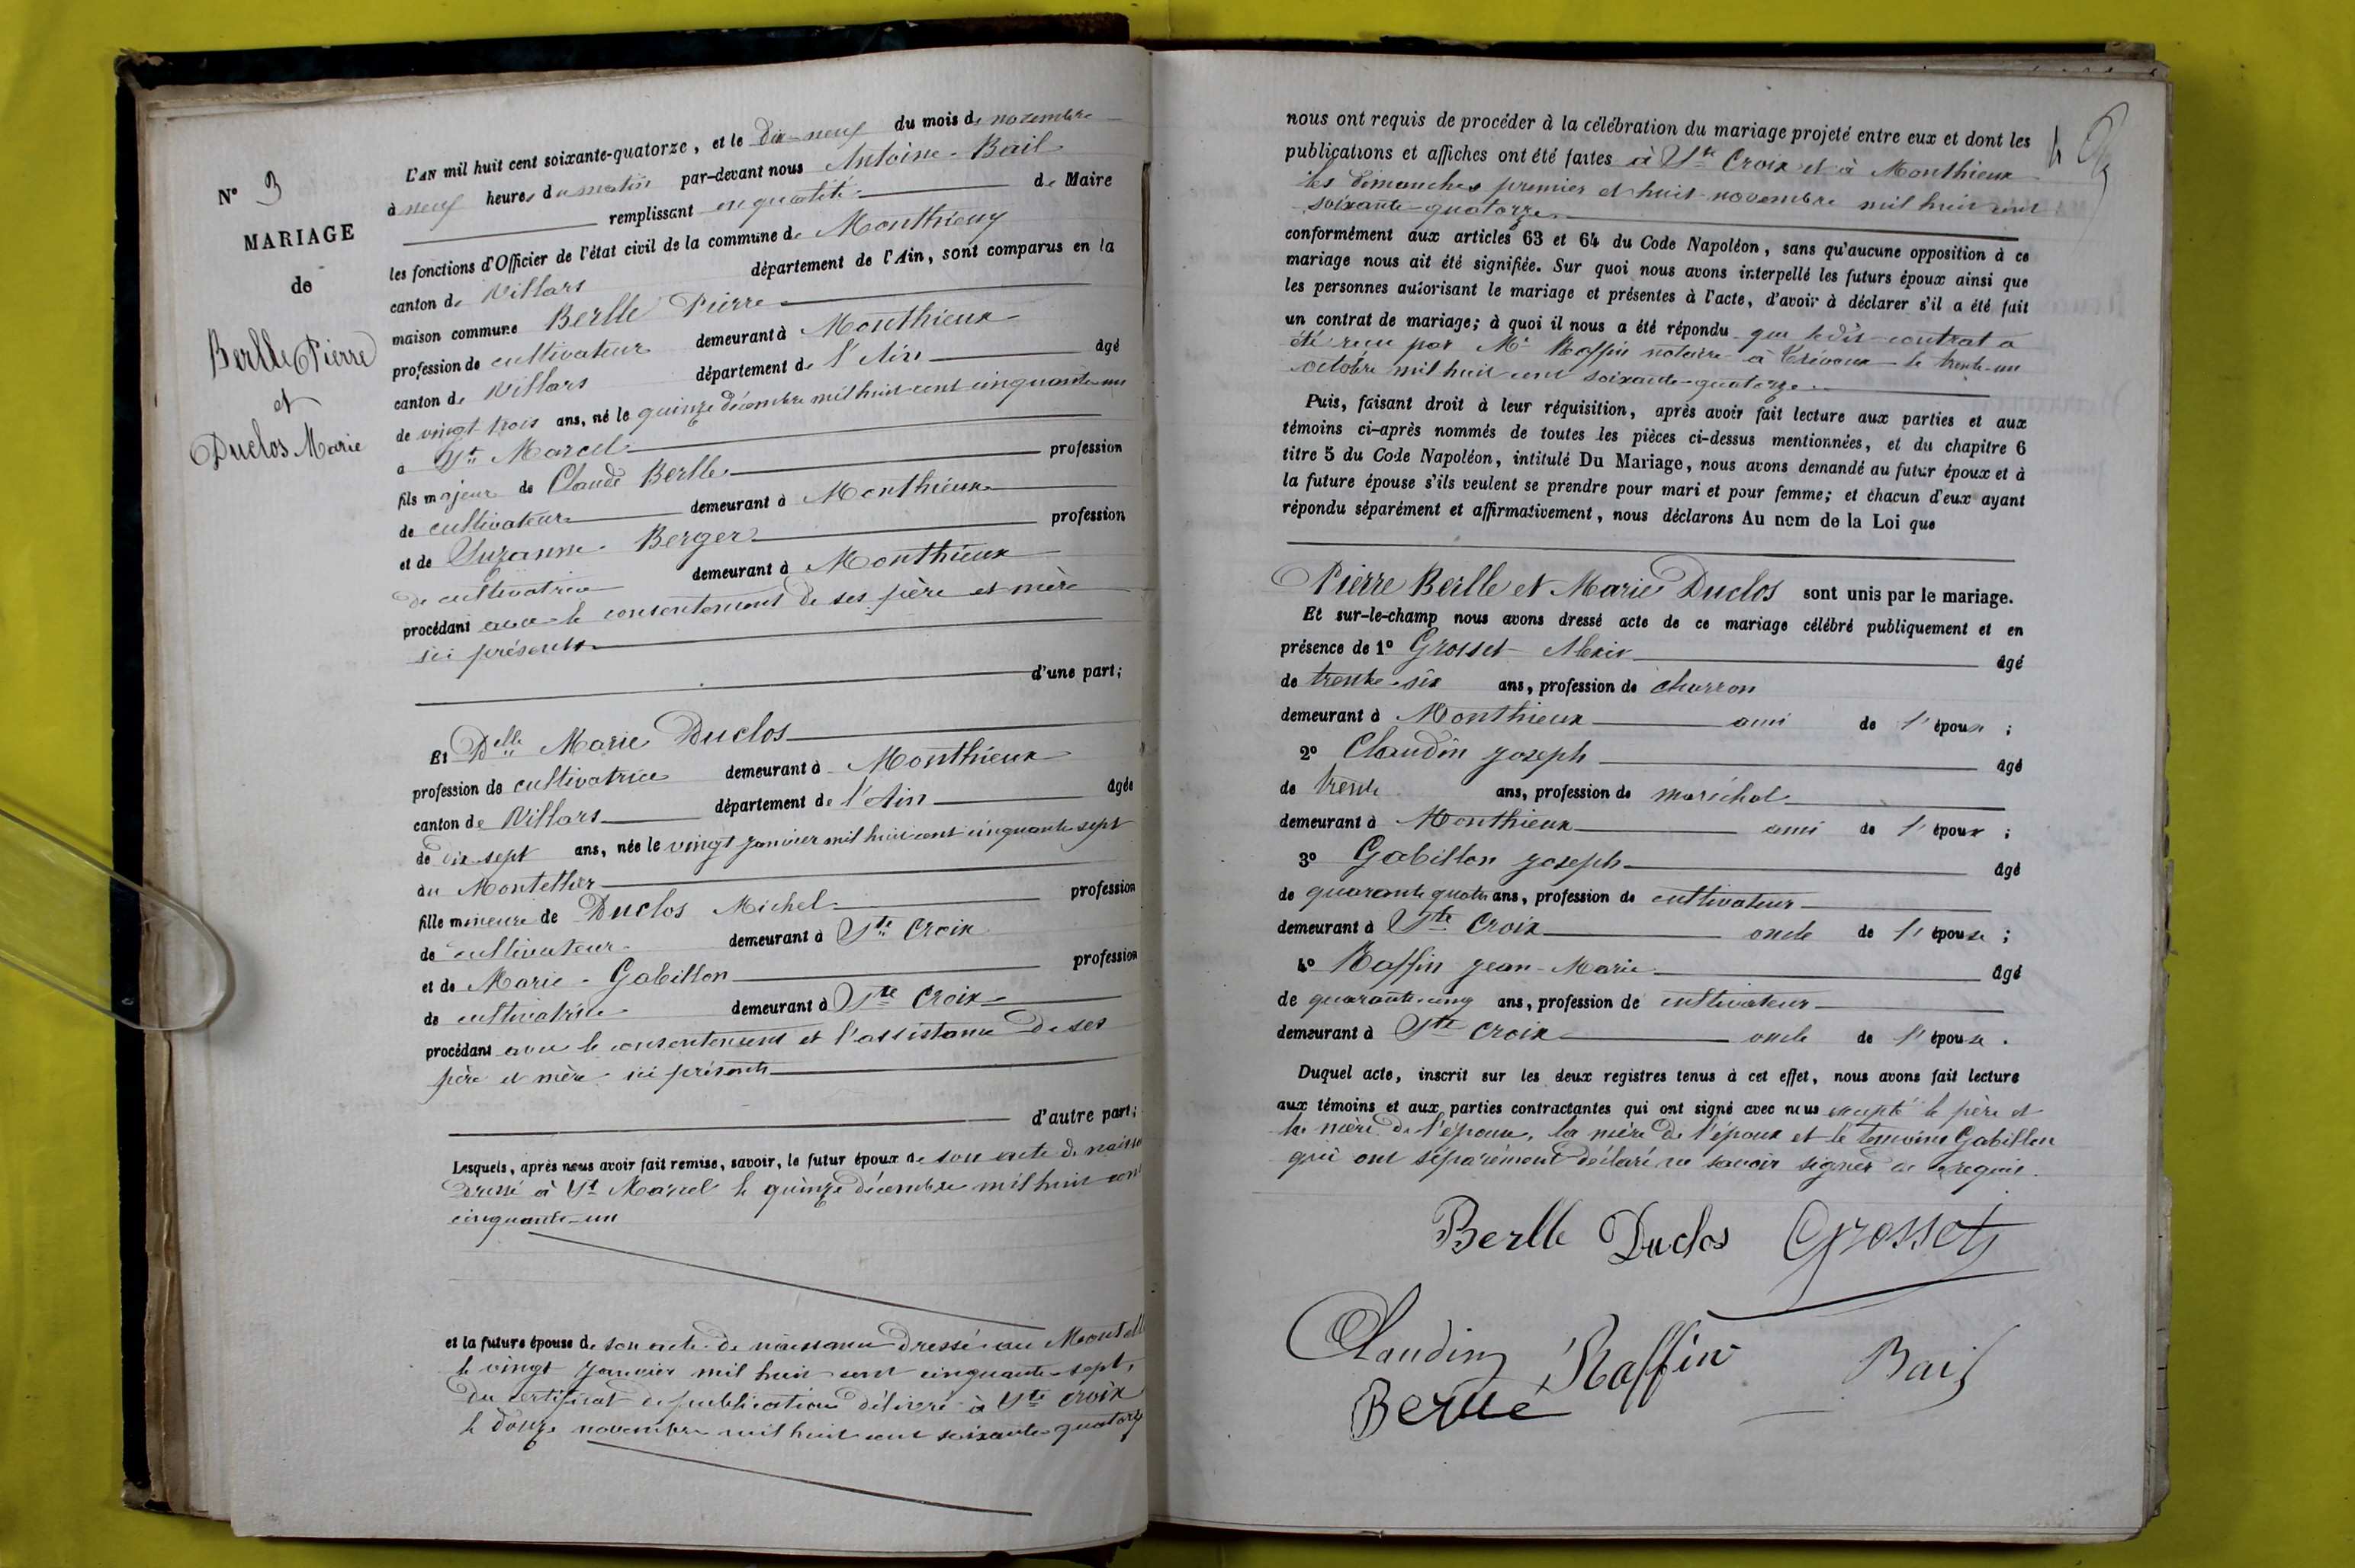 N° 3
MARIAGE
de
Berlle Pierre
et
Duclos Marie
L'AN mil huit cent soixante-quatorze, et le dix-neuf du mois de novembre
à neuf heures du matin par-devant nous Antoine Bail
remplissant en qualité de Maire
les fonctions d'Officier de l'état civil de la commune de Monthieux
canton de Villars département de l'Ain, sont comparus en la
maison commune Berlle Pierre
profession de cultivateur demeurant à Monthieux
canton de Villars département de l'Ain âgé
de vingt trois ans, né le quinze décembre mil huit cent cinquante-un
à St Marcel
fils majeur de Claude Berlle profession
de cultivateur demeurant à Monthieux
et de Suzanne Berger profession
de cultivatrice demeurant à Monthieux
procédant avec le consentement de ses père et mère
ici présents
d'une part;
Et Delle Marie Duclos
profession de cultivatrice demeurant à Monthieux
canton de Villars département de l'Ain âgée
de dix-sept ans, née le vingt janvier mil huit cent cinquante sept
au Montellier
fille mineure de Duclos Michel profession
de cultivateur demeurant à Ste Croix
et de Marie Gabillon profession
de cultivatrice demeurant à Ste Croix
procédant avec le consentement et l'assistance de ses
père et mère ici présents
d'autre part;
Lesquels, après nous avoir fait remise, savoir, le futur époux de son acte de naiss
dressé à St Marcel le quinze décembre mil huit cent
cinquante-un
et la future épouse de son acte de naissance dressé au Montell
le vingt janvier mil huit cent cinquante-sept,
du certificat de publication délivré à Ste Croix
le douze novembre mil huit cent soixante quatorze
4
nous ont requis de procéder à la célébration du mariage projeté entre eux et dont les
publications et affiches ont été faites à Ste Croix et à Monthieux
les dimanches premier et huit novembre mil huit cent
soixante-quatorze
conformément aux articles 63 et 64 du Code Napoléon, sans qu'aucune opposition à ce
mariage nous ait été signifiée. Sur quoi nous avons interpellé les futurs époux ainsi que
les personnes autorisant le mariage et présentes à l'acte, d'avoir à déclarer s'il a été fait
un contrat de mariage; à quoi il nous a été répondu que le dit contrat a
été reçu par Me Raffin notaire à Trévoux le trente-un
octobre mil huit cent soixante-quatorze
Puis, faisant droit à leur réquisition, après avoir fait lecture aux parties et aux
témoins ci-après nommés de toutes les pièces ci-dessus mentionnées, et du chapitre 6
titre 5 du Code Napoléon, intitulé Du Mariage, nous avons demandé au futur époux et à
la future épouse s'ils veulent se prendre pour mari et pour femme; et chacun d'eux ayant
répondu séparément et affirmativement, nous déclarons Au nom de la Loi que
Pierre Berlle et Marie Duclos sont unis par le mariage.
Et sur-le-champ nous avons dressé acte de ce mariage célébré publiquement et en
présence de 1° Grosset Alexis âgé
de trente-six ans, profession de charron
demeurant à Monthieux ami de l'époux ;
2° Claudin Joseph âgé
de trente ans, profession de maréchal
demeurant à Monthieux ami de l'époux ;
3° Gabillon Joseph âgé
de quarante quatre ans, profession de cultivateur
demeurant à Ste Croix oncle de l'épouse ;
4° Raffin Jean-Marie âgé
de quarante-cinq ans, profession de cultivateur
demeurant à Ste Croix oncle de l'épouse .
Duquel acte, inscrit sur les deux registres tenus à cet effet, nous avons fait lecture
aux témoins et aux parties contractantes qui ont signé avec nous excepté le père et
la mère de l'époux, la mère de l'épouse et le témoins Gabillon
qui ont séparément déclaré ne savoir signer de ce requis.
Berlle Duclos Grosset
Claudin Raffin Bail
Berlle